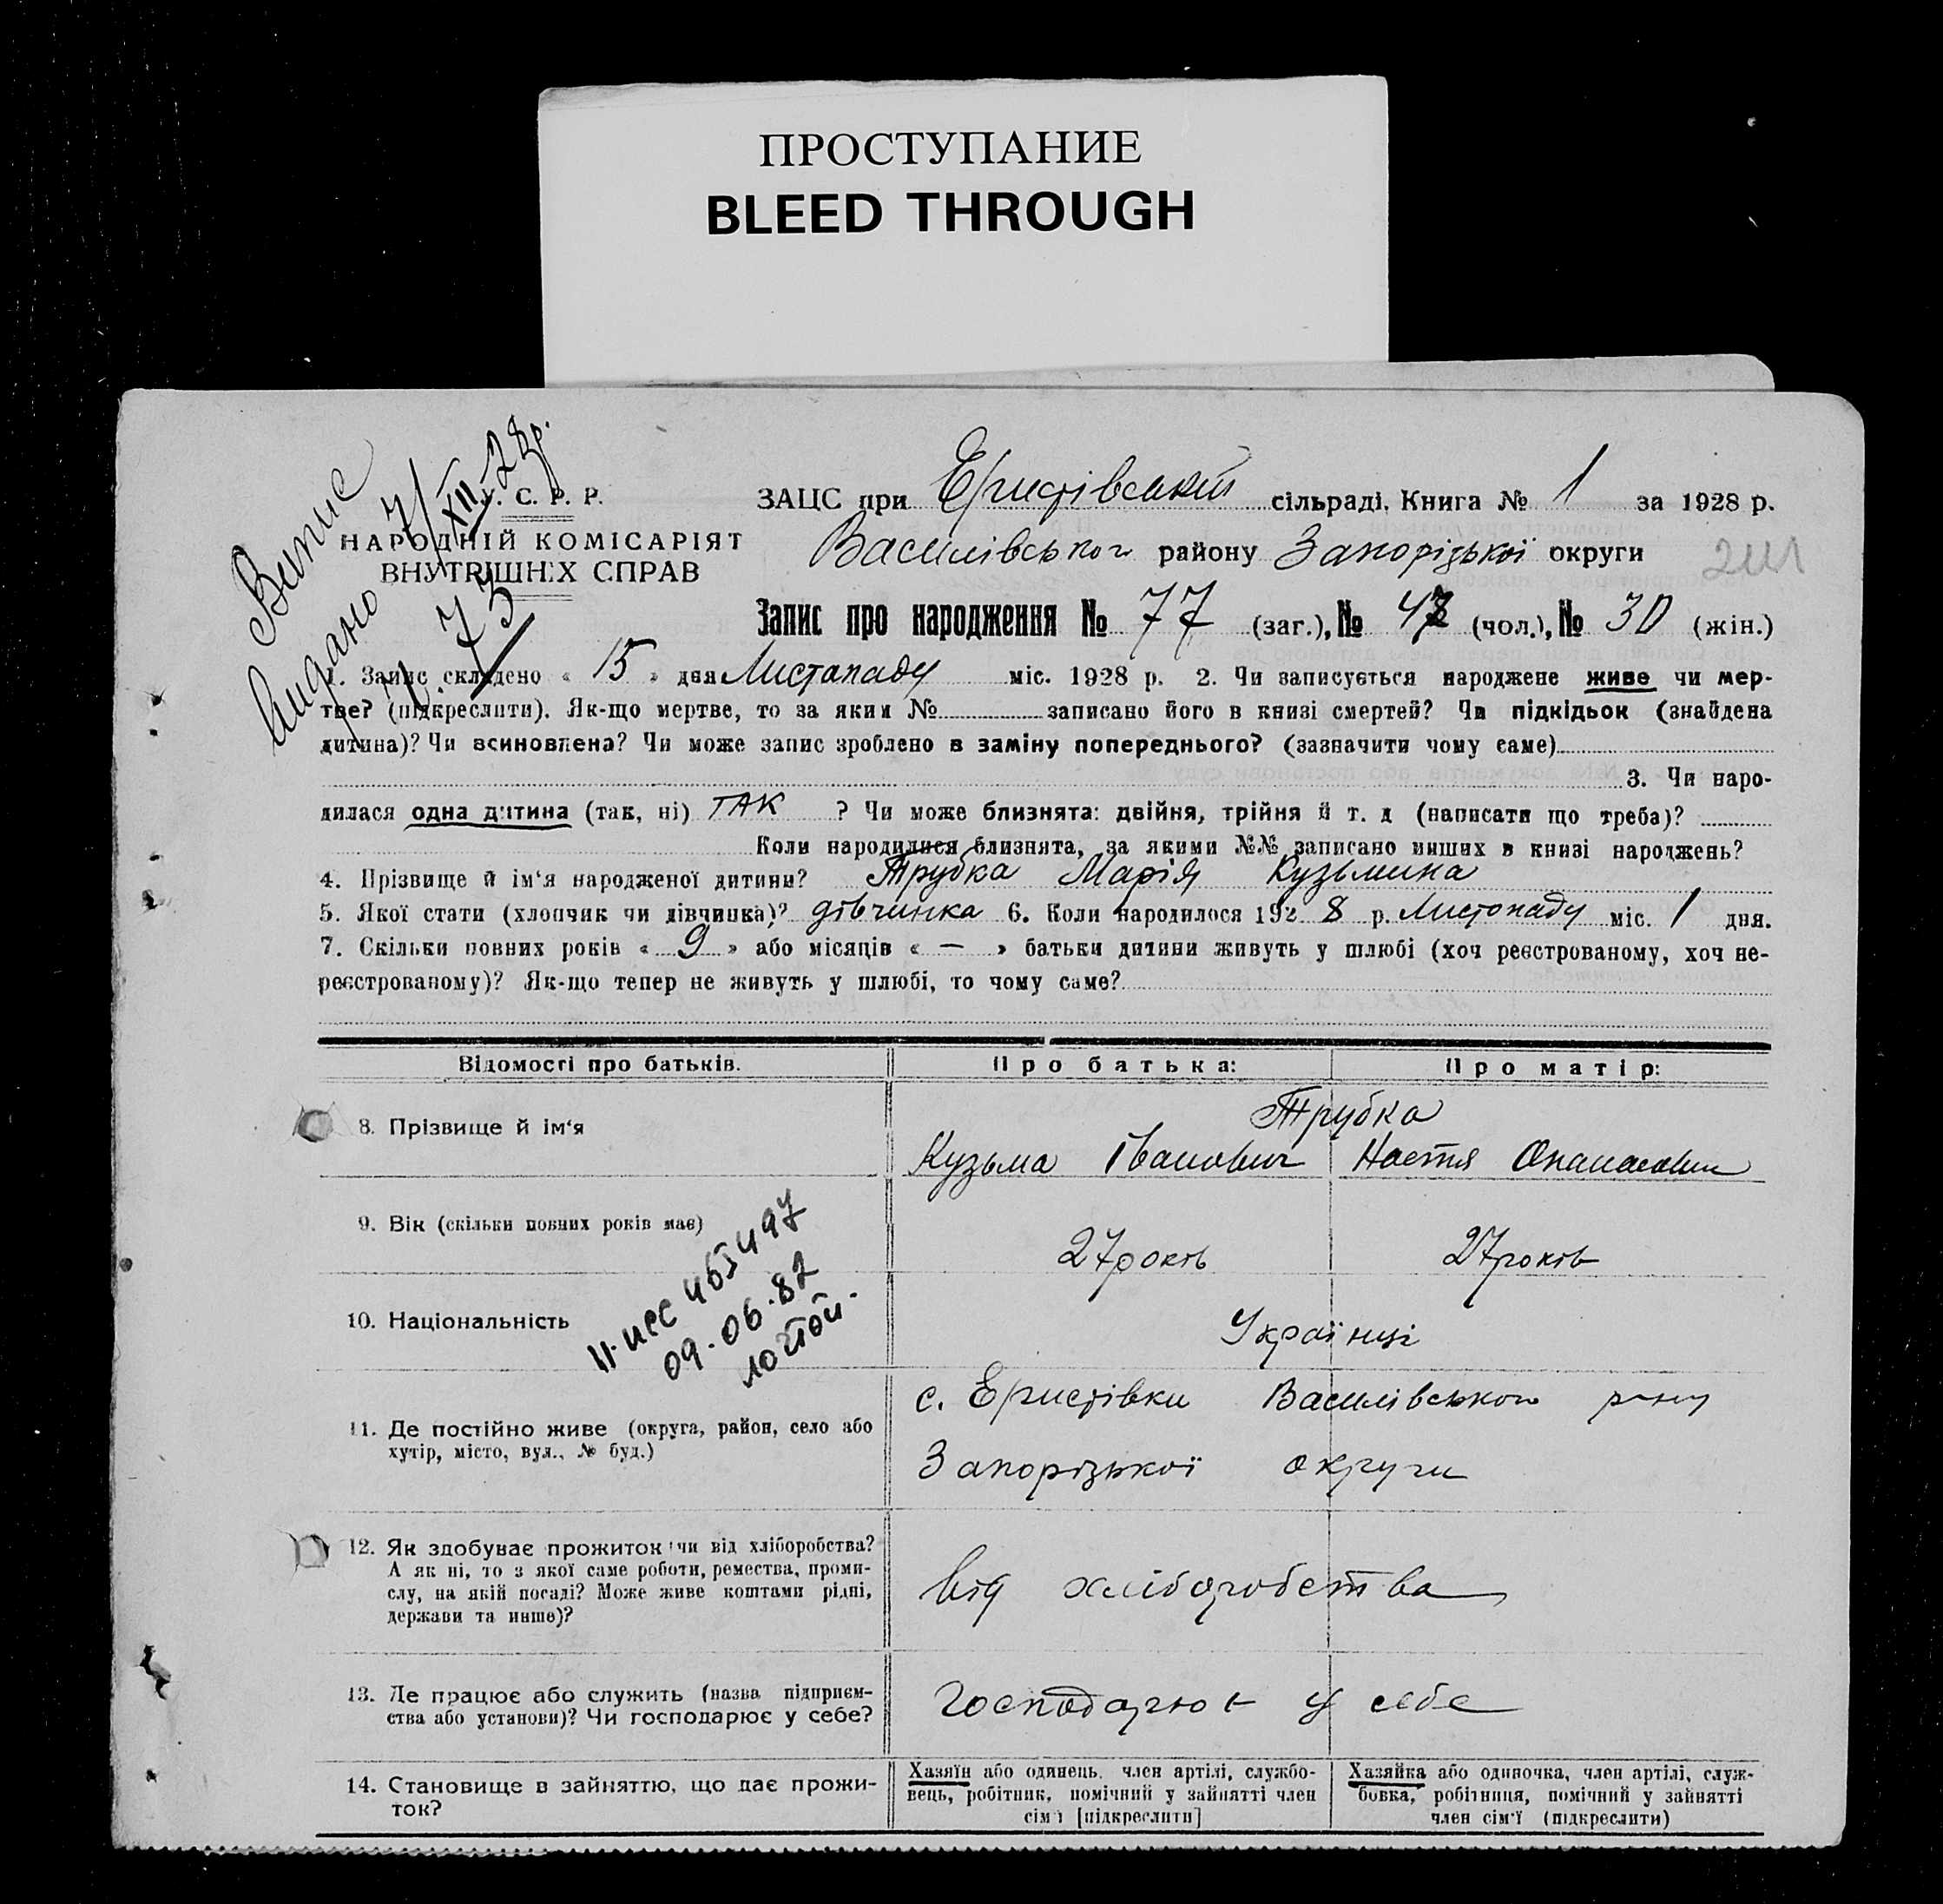 ПРОСТУПАНИЕ
BLEED THROUGH
Випис
Видано 7/XII-28р.
73
У. С. Р. Р.
НАРОДНІЙ КОМІСАРІЯТ
ВНУТРІШНІХ СПРАВ
ЗАЦС при Еристівській сільраді, Книга № 1 за 1928 р.
Василівського району Запорізької округи
Запис про народження № 77 (заг.), № 47 (чол.), № 30 (жін.)
1. Запис складено « 15 » дня Листападу міс. 1928 р. 2. Чи записується народжене живе чи мер-
тве? (підкреслити). Як-що мертве, то за яким № записано його в книзі смертей? Чи підкідьок (знайдена
дитина)? Чи всиновлена? Чи може запис зроблено в заміну попереднього? (зазначити чому саме)
3. Чи наро-
дилася одна дитина (так, ні) ТАК ? Чи може близнята: двійня, трійня й т. д (написати що треба)?
Коли народилися близнята, за якими №№ записано инших в книзі народжень?
4. Прізвище й ім'я народженої дитини? Трубка Марія Кузьмина
5. Якої стати (хлопчик чи дівчинка)? дівчинка 6. Коли народилося 192 8 р. Листопаду міс. 1 дня.
7. Скільки повних років « 9 » або місяців « — » батьки дитини живуть у шлюбі (хоч реєстрованому, хоч не-
реєстрованому)? Як-що тепер не живуть у шлюбі, то чому саме?
Відомості про батьків. Про батька: Про матір:
Трубка
8. Прізвище й ім'я Кузьма Іванович Настя Опанасович
9. Вік (скільки повних років має) 27 років 27 років
09.06.82
10. Національність Українці
11. Де постійно живе (округа, район, село або
хутір, місто, вул., № буд.)
с. Еристівки Василівського р-ну
Запорізької округи
12. Як здобуває прожиток чи від хліборобства?
А як ні, то з якої саме роботи, ремества, проми-
слу, на якій посаді? Може живе коштами рідні,
держави та инше)?
від хліборобства
13. Де працює або служить (назва підприєм-
ства або установи)? Чи господарює у себе?
Господарюют у себе
14. Становище в зайняттю, що дає прожи-
ток?
Хазяїн або одинець, член артілі, службо-
вець, робітник, помічний у зайнятті член
сім'ї [підкреслити]
Хазяйка або одиночка, член артілі, служ-
бовка, робітниця, помічний у зайнятті
член сім'ї (підкреслити)